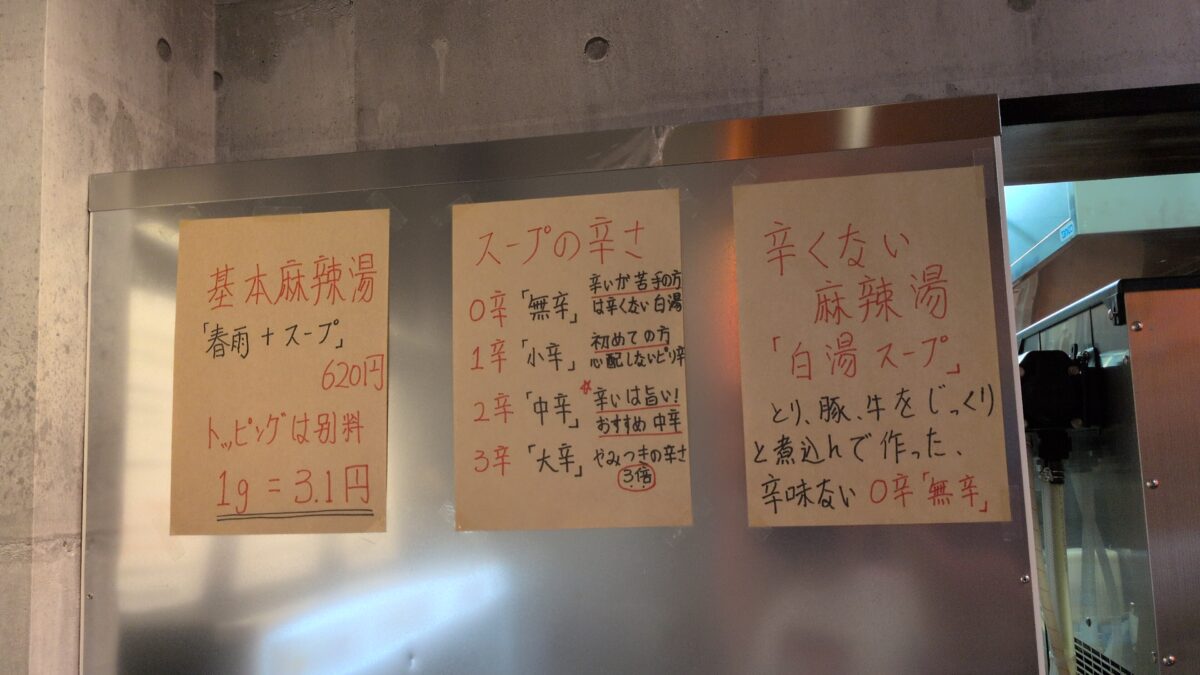 基本麻辣湯
「春雨+スープ」
620円
トッピングは別料
1g = 3.1円
スープの辛さ
0辛「無辛」辛いが苦手の方
は辛くない白湯
1辛「小辛」初めての方
心配しないピリ辛
2辛「中辛」☆辛いは旨い!
おすすめ中辛
3辛「大辛」やみつきの辛さ
3倍
辛くない
麻辣湯
「白湯スープ」
とり、豚、牛をじっくり
と煮込んで作った、
辛味ない0辛「無辛」